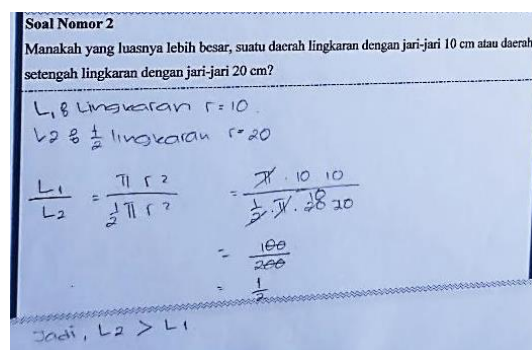 Soal Nomor 2
Manakah yang luasnya lebih besar, suatu daerah lingkaran dengan jari-jari 10 cm atau daerah
setengah lingkaran dengan jari-jari 20 cm?
L1 : Lingkaran r = 10.
L2 : 1/2 lingkaran r = 20
L1/L2 = π r²/(1/2 π r²) = π . 10 10/(1/2 . π . 20 20)
= 100/200
= 1/2
Jadi, L2 > L1